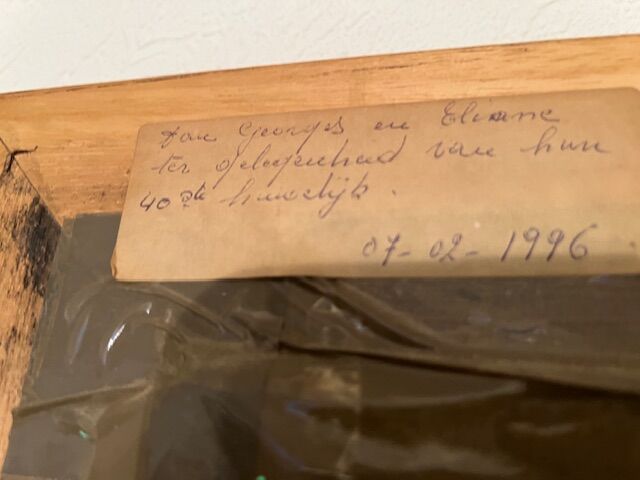 Aan Georges en Eliane
ter gelegenheid van hun
40ste huwelijk.
07-02-1996